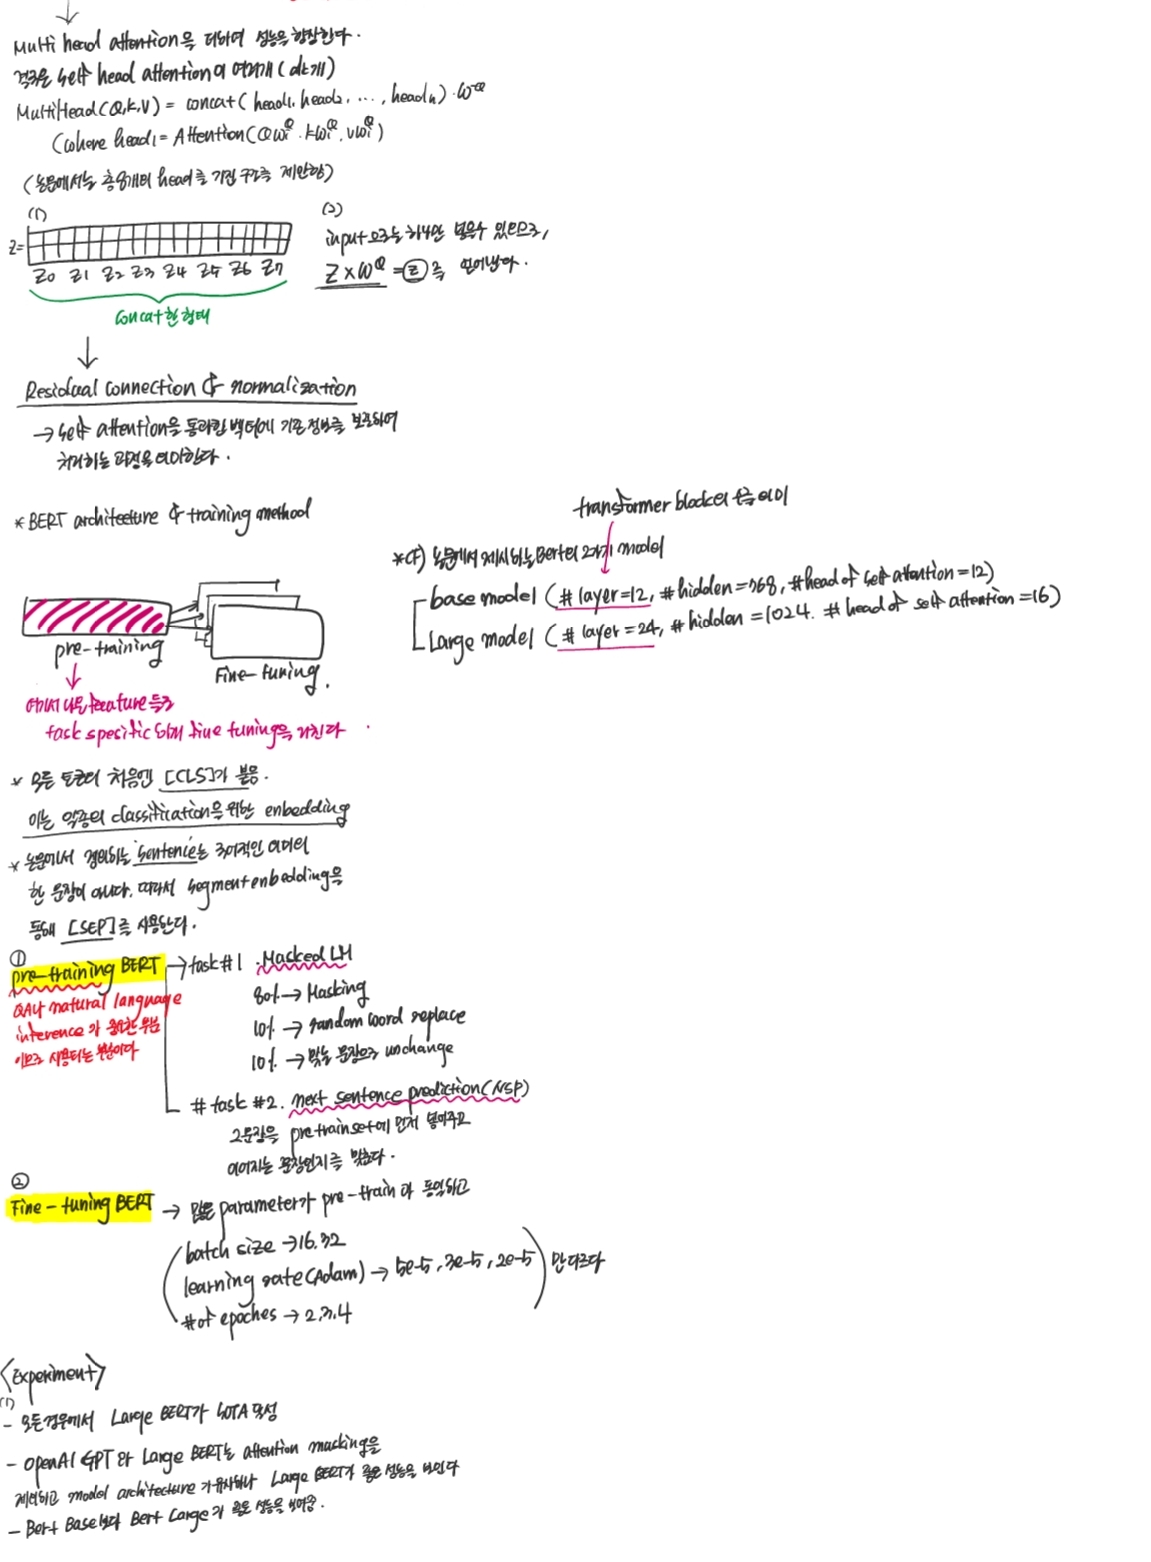 Multi head attention을 더하여 성능을 향상한다.
결국은 self head attention이 여러개 (dk개)
MultiHead(Q,K,V) = concat(head1, head2, ..., headn)·W^Q
(where head1 = Attention(QWi^Q. KWi^Q, VWi^Q)
(논문에서는 총 8개의 head를 가진 구조를 제안함)
(1)
Z=
Z0 Z1 Z2 Z3 Z4 Z5 Z6 Z7
concat한 형태
(2)
input으로는 하나만 넣을수 있으므로,
Z × W^Q = Z 를 얻어낸다.
Residual connection & normalization
→ self attention을 통과한 벡터에 기존 정보를 보존하여
처리하는 과정을 의미한다.
* BERT architecture & training method
pre-training
Fine-tuning.
여기서 나온 feature들로
task spesific 하게 fine tuning을 거친다.
transformer block의 수를 의미
*cf) 논문에서 제시하는 Bert의 2가지 model
base model (# layer=12, # hidden=768, #head of self attention=12)
Large model (# layer=24, # hidden=1024. # head of self attention=16)
* 모든 토큰의 처음엔 [CLS]가 붙음.
이는 일종의 classification을 위한 enbedding
* 논문에서 정의하는 'sentence'는 언어적인 의미의
한 문장이 아니다. 따라서 segment enbedding을
통해 [SEP]를 사용한다.
①
pre-training BERT → task #1. Masked LM
QA나 natural language
inference가 중요한 부분
이므로 사용되는 부분이다
80% → Masking
10% → random word replace
10% → 맞는 문장으로 unchange
# task #2. next sentence prediction(NSP)
2문장을 pretrain set에 먼저 넣어주고
이어지는 문장인지를 맞춘다.
②
Fine-tuning BERT → 많은 parameter가 pre-train과 동일하고
batch size → 16.32
learning rate(Adam) → 5e-5, 3e-5, 2e-5 만 다르다
# of epoches → 2,3,4
<Experiment>
(1)
- 모든경우에서 Large BERT가 SOTA 달성
- OpenAI GPT와 Large BERT는 attention masking을
제외하고 model architecture가 유사하나 Large BERT가 좋은 성능을 보인다
- Bert Base보다 Bert Large가 좋은 성능을 보여줌.